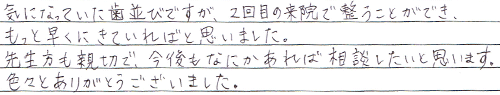 気になっていた歯並びですが、2回目の来院で整うことができ、
もっと早くにきていればと思いました。
先生方も親切で、今後もなにかあれば相談したいと思います。
色々とありがとうございました。